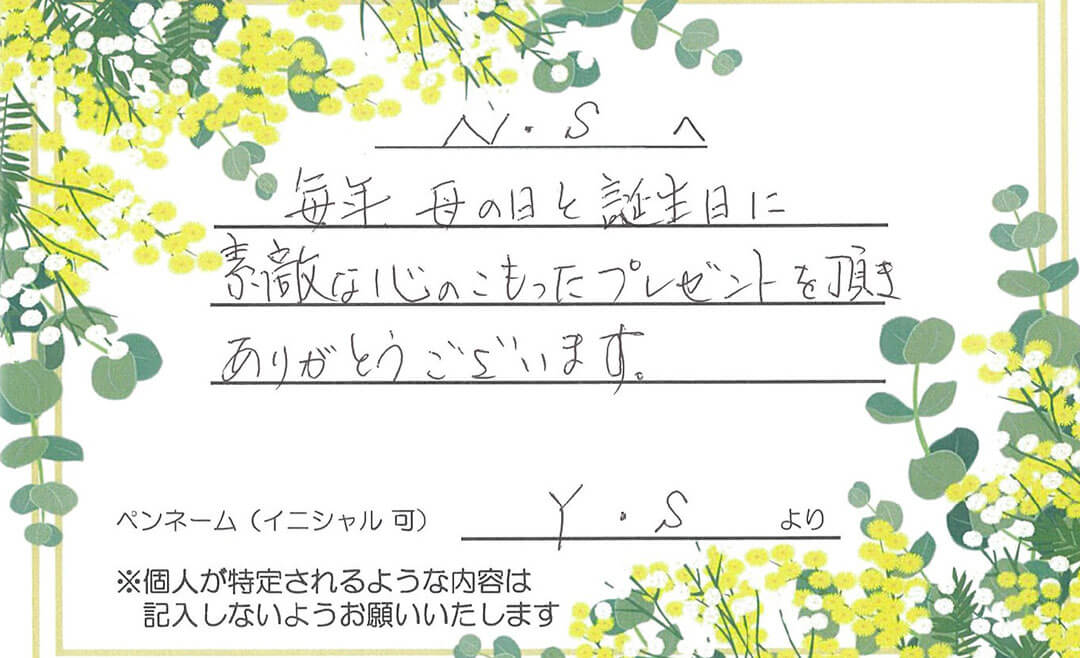 N.S へ
毎年、母の日と誕生日に
素敵な心のこもったプレゼントを頂き
ありがとうございます。
ペンネーム（イニシャル 可） Y.S より
※個人が特定されるような内容は
記入しないようお願いいたします